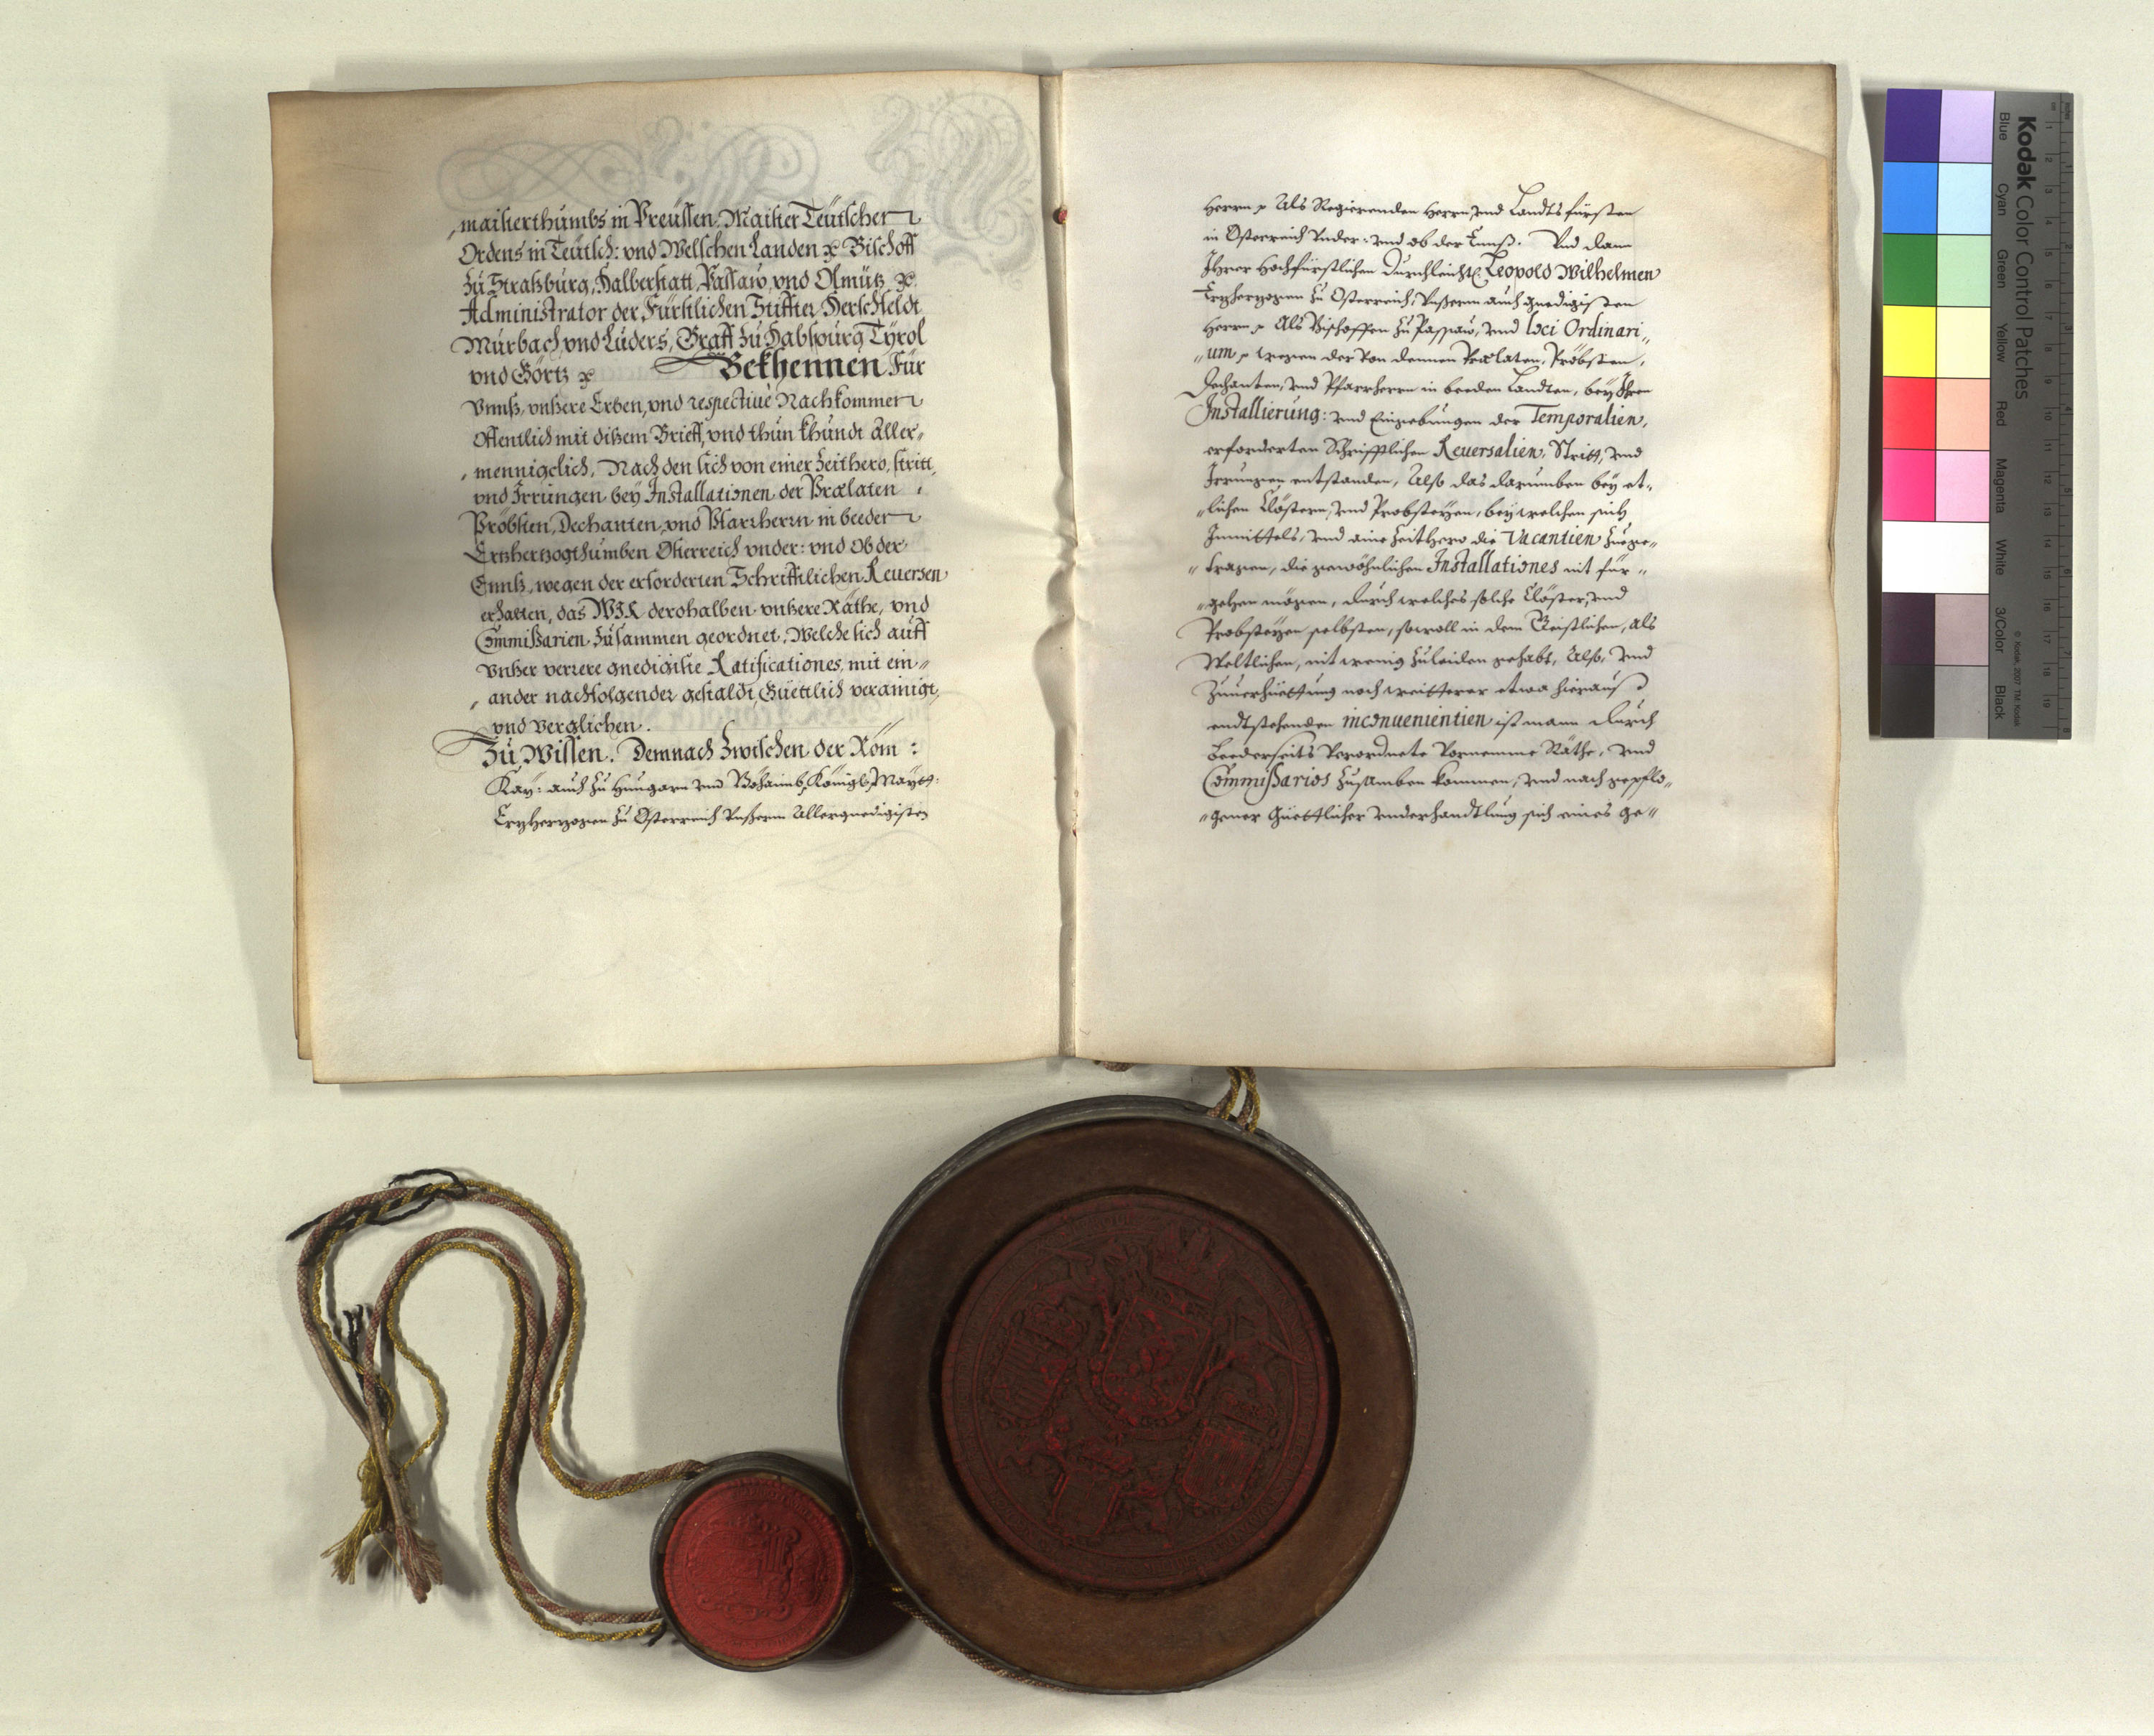 maisterthumbs in Preüssen, Maister Teütscher
Ordens in Teütsch: vnd Welschen Landen ꝛc Bischoff
zu Straßburg, Halberstatt, Passaw, vnd Olmütz ꝛc.
Administrator der Fürstlichen Stiffter Herschfeldt
Mürbach vnd Lüders, Graff zu Habspurg Tÿrol
vnd Görtz ꝛc Bekhennen Für
Vnnß, vnßere Erben, vnd respectiuè Nachkommen
Offentlich mit dißem Brieff, vnd thun khundt Aller„
„menniglich, Nach den sich von einer Zeithero, stritt,
vnd Irrungen beÿ Installationen der Prælaten
Pröbsten, Dechanten, vnd Pfarrherrn in beeder
Ertzhertzogthumben Österreich vnder: vnd Ob der
Ennß, wegen der erforderten Schrifftlichen Reuersen
erhalten, das WIR derohalben vnßere Räthe, vnd
Commißarien zusammen geordnet, Welche sich auff
Vnßer verrere gnedigiste Ratificationes, mit ein„
„ander nachfolgender gestaldt, Güettlich verainigt,
vnd verglichen.
Zu Wissen. Demnach Zwischen der Röm:
Kaÿ: auch zu Hungarn vnd Böhaimb, Königl: Maÿtt:
Ertzhertzogen zu Österreich Vnßerm Allergnedigisten
Herrn ꝛc Als Regierenden Herrn, vnd Landtsfürsten
in Österreich Vnder: vnd ob der Ennß. Vnd dann
Ihrer Hochfürstlichen Durchleücht: Leopold Wilhelmen
Ertzhertzogen zu Österreich, Vnßerm auch gnedigisten
Herrn ꝛc Als Bischoffen zu Passaw, vnd loci Ordinari„
„um ꝛc wegen der von dennen Prælaten, Pröbsten,
Dechanten, vnd Pfarrherrn in beeden Landten, beÿ Ihrer
Installierung: vnd Eingebungen der Temporalien,
erforderten Schrifftlichen Reuersalien, Stritt, vnd
Irrungen entstanden, Also das darumben beÿ et„
„lichen Clöstern, vnd Probsteÿen, beÿ welchen sich
Inmittels, vnd eine Zeithero die Vacantien zuege„
„tragen, die gewöhnlichen Installationes nit für„
„gehen mögen, durch welches solche Clöster, vnd
Probsteÿen selbsten, sowoll in dem Geistlichen, als
Weltlichen, nit wenig zuleiden gehabt, Also, vnd
Zuuerhüettung noch weitterer etwa hierauß
endtstehenden inconuenientien ist mann durch
beederseits Verordnete Vornemme Räthe, vnd
Commißarios zusamben kommen, vnd nach gepflo„
„gener Güettlicher vnderhandtlung sich eines ge„
Kodak Color Control Patches
Blue Cyan Green Yellow Red Magenta White 3/Color Black
© Kodak, 2007 TM: Kodak